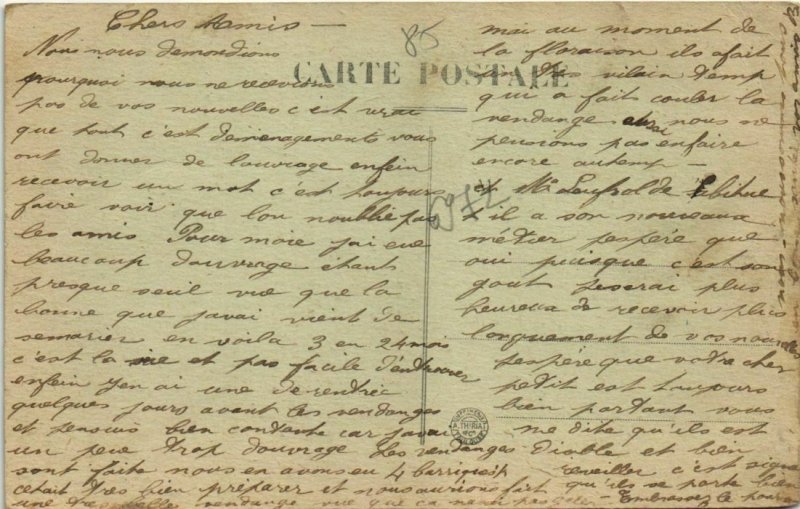 Chers Amis —
Nous nous demondions
pourquoi nous ne recevions
pas de vos nouvelles c est vrai
que tout c'est demenagements vous
ont donner de louvrage enfein
recevoir un mot c'est toujours
faire voir que lon noublie pas
les amis Pour moie jai eue
beaucoup douvrage étant
presque seuil vue que la
bonne que javai vient de
semarier en voila 3 en 24 mois
c'est la vie et pas facile d'entrouver
enfein yen ai une de rentrée
quelques jours avant les vendanges
et jensuis bien contante car javai
un peue trop douvrage Les vendanges
sont faite nous en avons eu 4 barriques
cétait tres bien préparer et nous aurions fait
une tres belle vendange vue que ca
85
CARTE POSTALE
mai au moment de
la floraison ils a fait
un tres vilain temp
qui a fait couler la
vendange nous ne
pensions pas enfaire
encore autemp —
et Mr
il a son nouveaux
métier jespére que
oui puisque c'est son
gout jeserai plus
heureux de recevoir plus
longuement de vos nouvelles
jespére que votre cher
petit est toujours
bien portant vous
me dite qu'ils est
diable et bien
reveiller c'est signe
qu'ils se porte bien
Embrassez le pour
IMPRIMERIES
A. THIRIAT